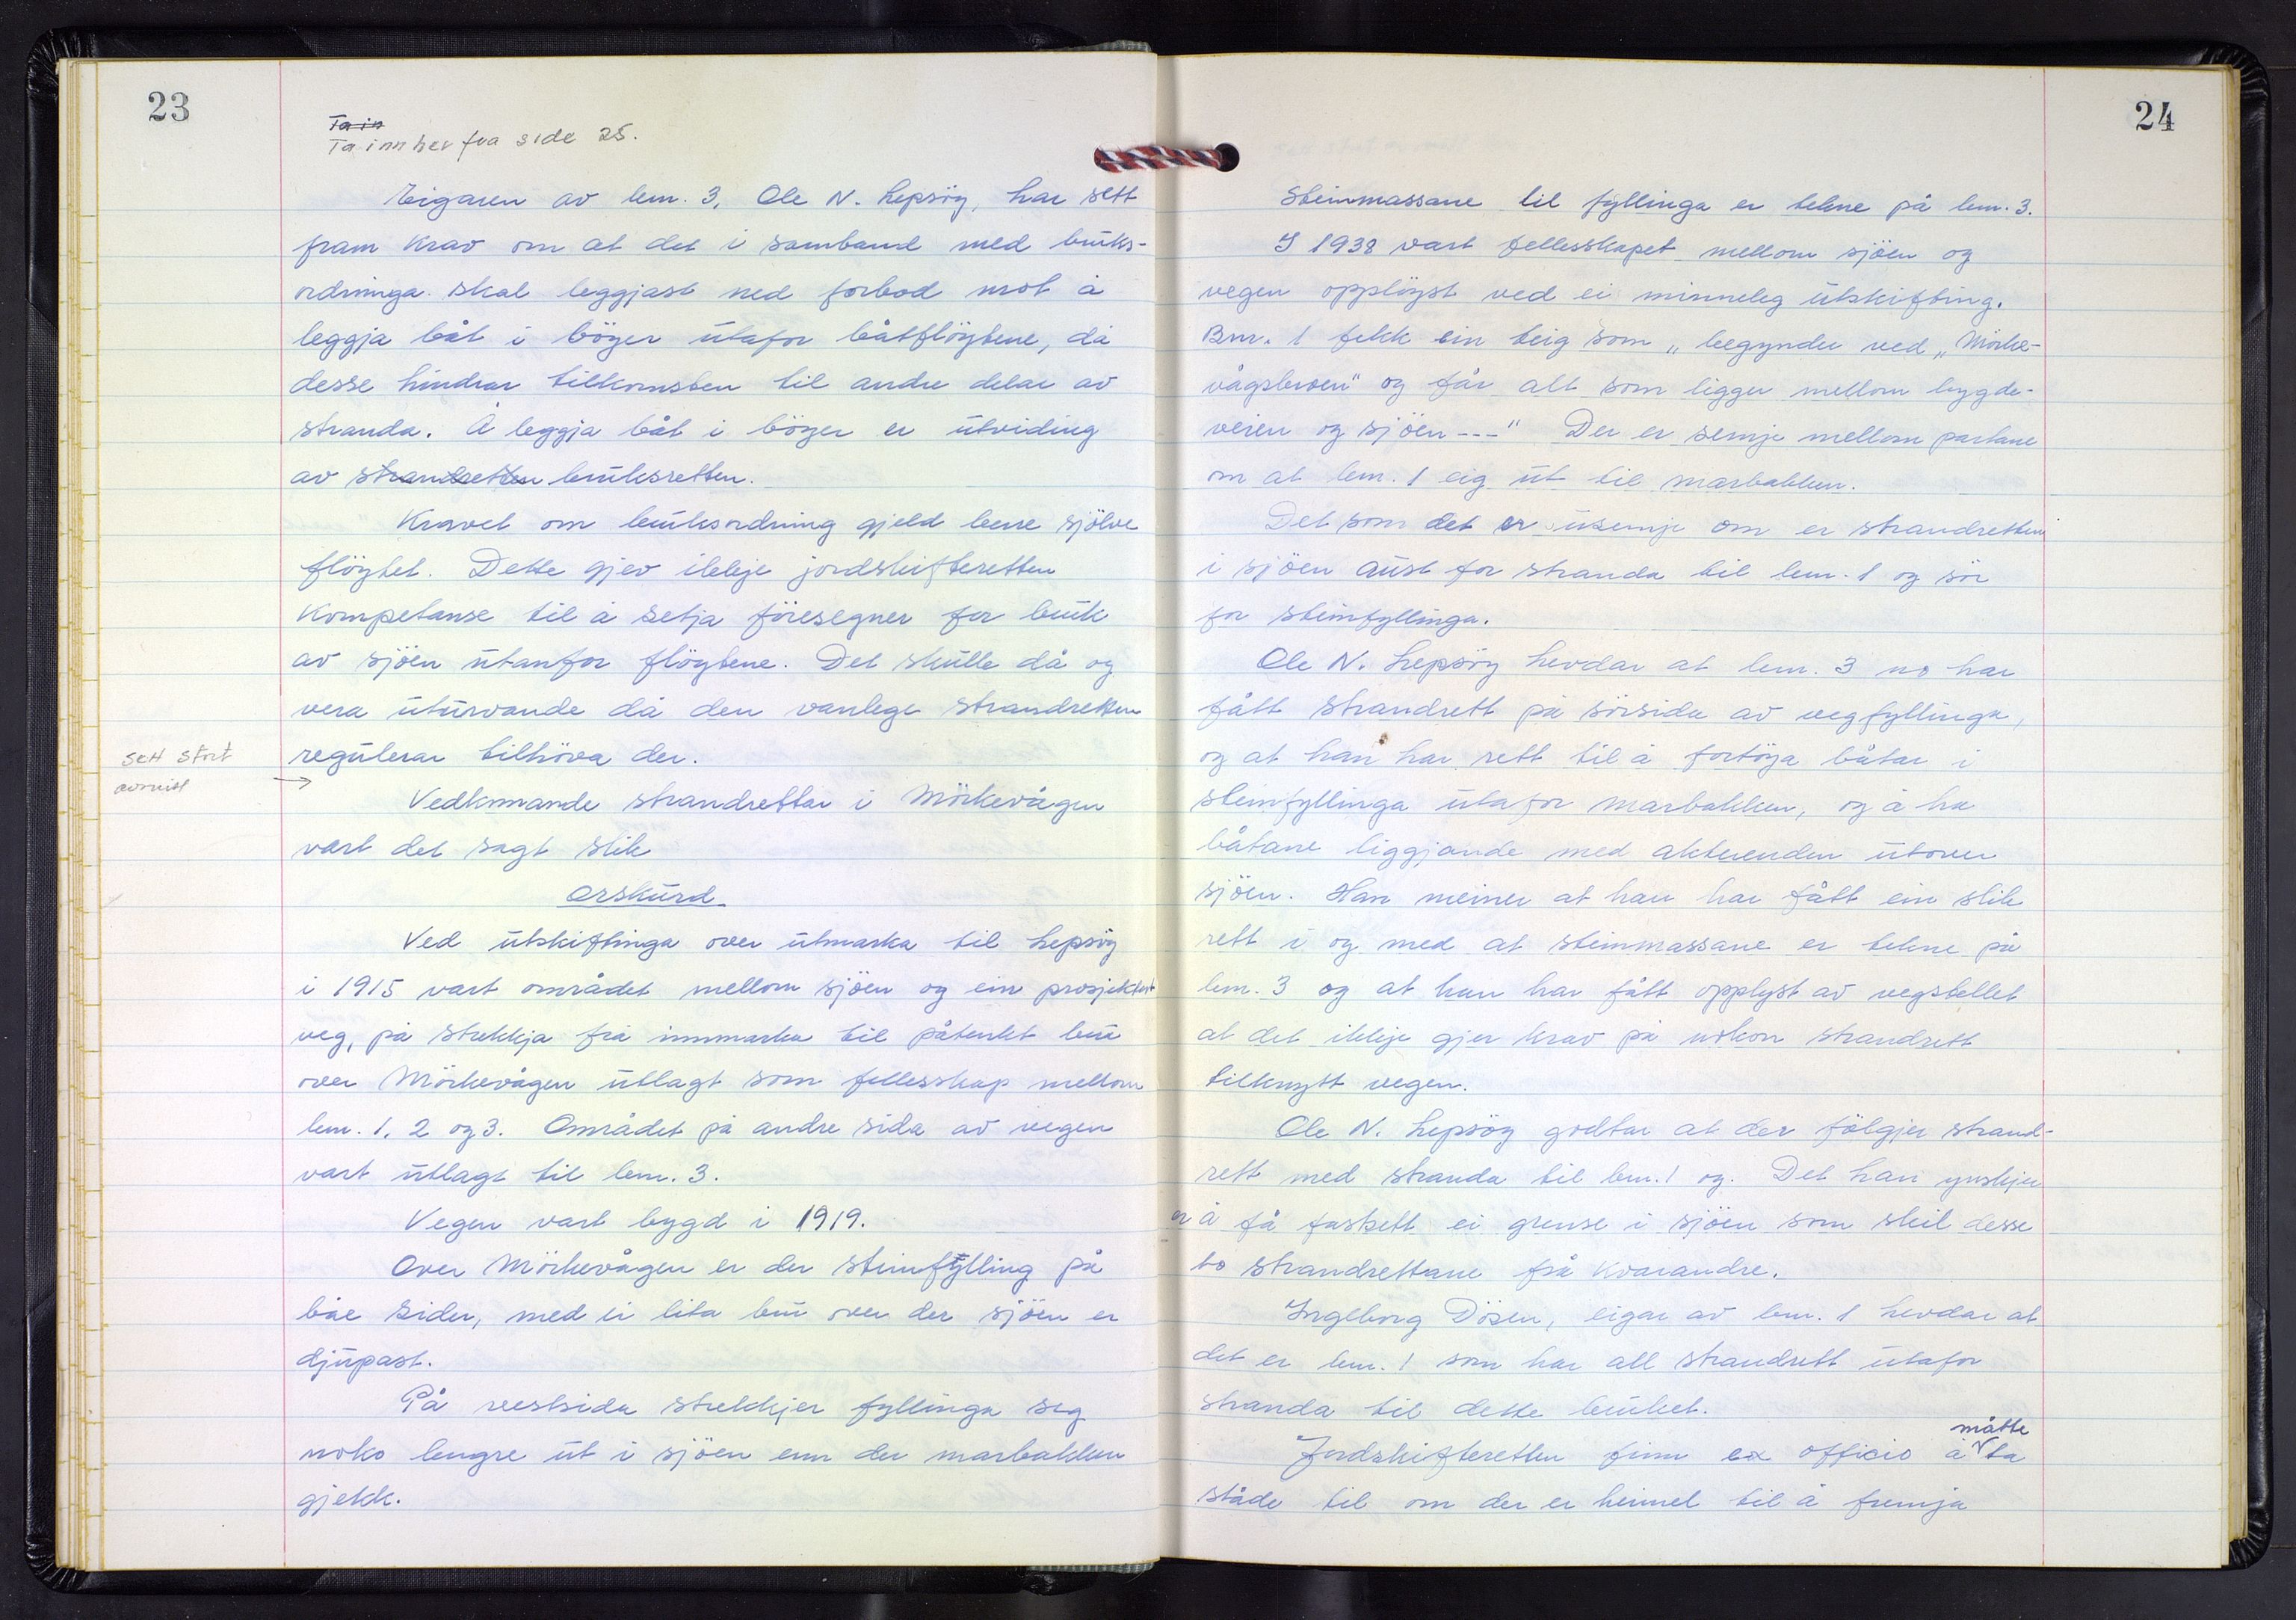 23
Ta in
Ta inn her fra side 25.
Eigaren av bnr. 3, Ole N. Lepsøy, har sett
fram krav om at det i samband med bruks-
ordninga skal leggjast ned forbod mot å
leggja båt i böyer utafor båtflöytene, då
desse hindrar tilkomsten til andre delar av
stranda. Å leggja båt i böyer er utviding
av strandretten bruksretten.
Kravet om bruksordning gjeld berre sjölve
flöytet. Dette gjev ikkje jordskifteretten
kompetanse til å setja föresegner for bruk
av sjöen utanfor flöytene. Det skulle då og
vera uturvande då den vanlege strandretten
regulerar tilhöva der.
sett stort
avsnitt
→
Vedkomande strandrettar i Mörkevågen
vart det sagt slik
Orskurd
Ved utskiftinga over utmarka til Lepsöy
i 1915 vart området mellom sjöen og ein prosjektert
veg, på strekkja frå innmarka til påtenkt bru
over Mörkevågen utlagt som fellesskap mellom
bnr. 1, 2 og 3. Området på andre sida av vegen
vart utlagt til bnr. 3.
Vegen vart bygd i 1919.
Over Mörkevågen er der steinfylling på
båe sider, med ei lita bru over der sjöen er
djupast.
På vestsida strekkjer fyllinga seg
noko lengre ut i sjöen enn der marbakken
gjekk.
24
Steinmassane til fyllinga er tekne på bnr. 3.
I 1938 vart fellesskapet mellom sjöen og
vegen opplöyst ved ei minneleg utskifting.
Bnr. 1 fekk ein teig som „begynder ved „Mörke-
vågsbroen" og får alt som ligger mellom bygde-
veien og sjöen ---" Der er semje mellom partane
om at bnr. 1 eig ut til marbakken.
Det som det er usemje om er strandretten
i sjöen aust for stranda til bnr. 1 og sör
for steinfyllinga.
Ole N. Lepsöy hevdar at bnr. 3 no har
fått strandrett på sörsida av vegfyllinga,
og at han har rett til å fortöya båtar i
steinfyllinga utafor marbakken, og å ha
båtane liggjande med akterenden utover
sjöen. Han meiner at han har fått ein slik
rett i og med at steinmassane er tekne på
bnr. 3 og at han har fått opplyst av vegstellet
at det ikkje gjer krav på nokon strandrett
tilknytt vegen.
Ole N. Lepsöy godtar at der fölgjer strand-
rett med stranda til bnr. 1 og. Det han ynskjer
er å få fastsett ei grense i sjöen som skil desse
to strandrettane frå kvarandre.
Ingeborg Dösen, eigar av bnr. 1 hevdar at
det er bnr. 1 som har all strandrett utafor
stranda til dette bruket.
måtte
Jordskifteretten finn ex officio å ta
ståde til om der er heimel til å fremja